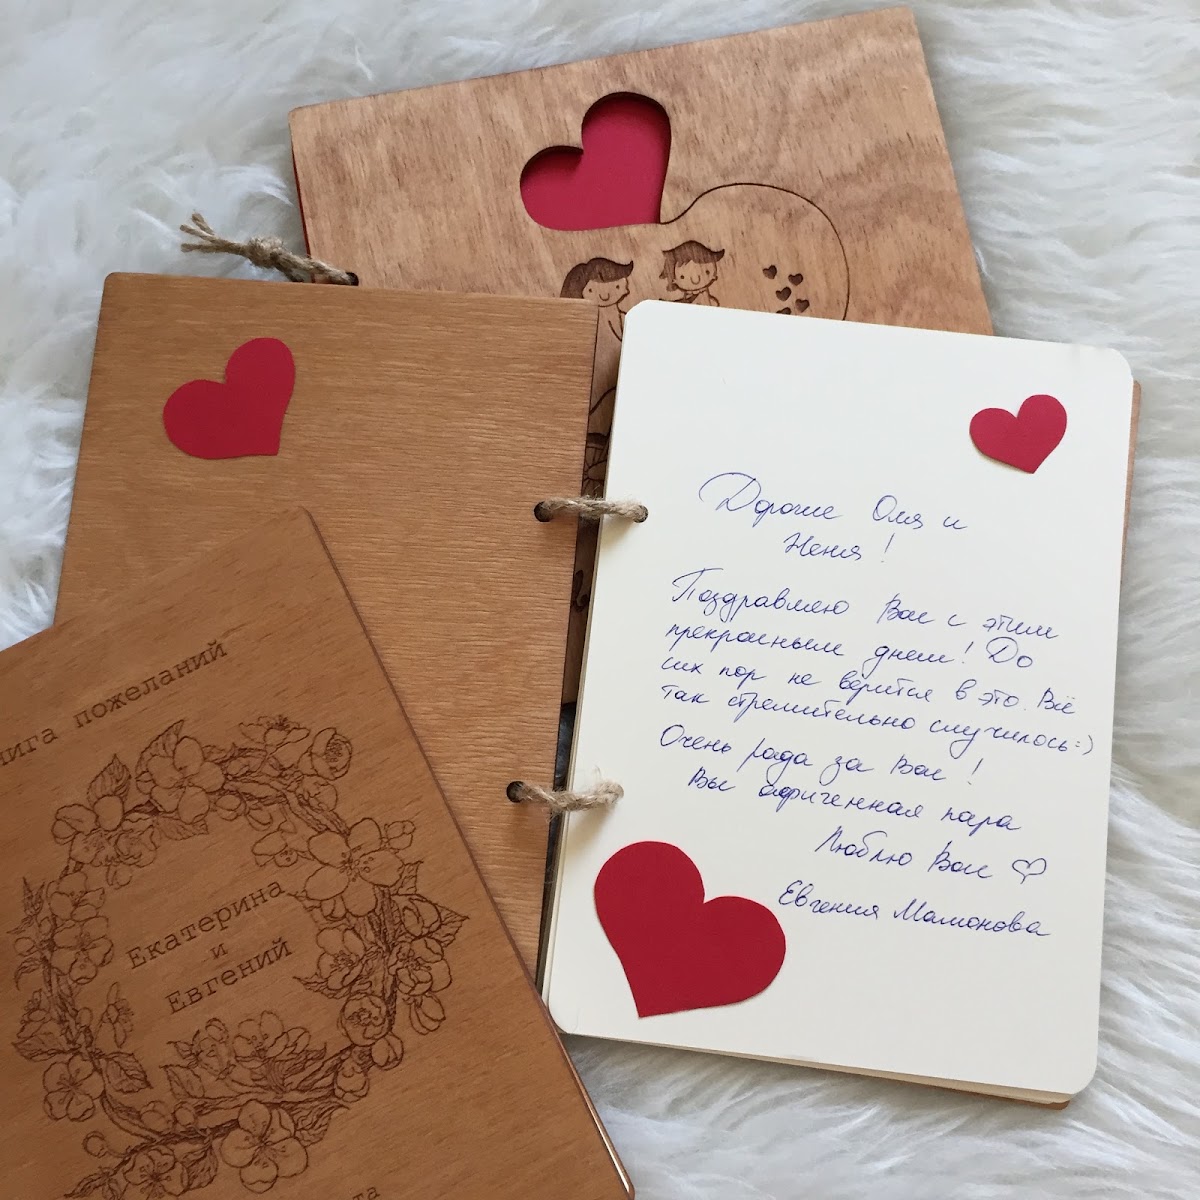 Дорогие Оля и
Женя!
Поздравляю Вас с этим
прекрасным днем! До
сих пор не верится в это. Всё
так стремительно случилось:)
Очень рада за Вас!
Вы офигенная пара
Люблю Вас ♡
Евгения Мамонова
нига пожеланий
Екатерина
и
Евгений